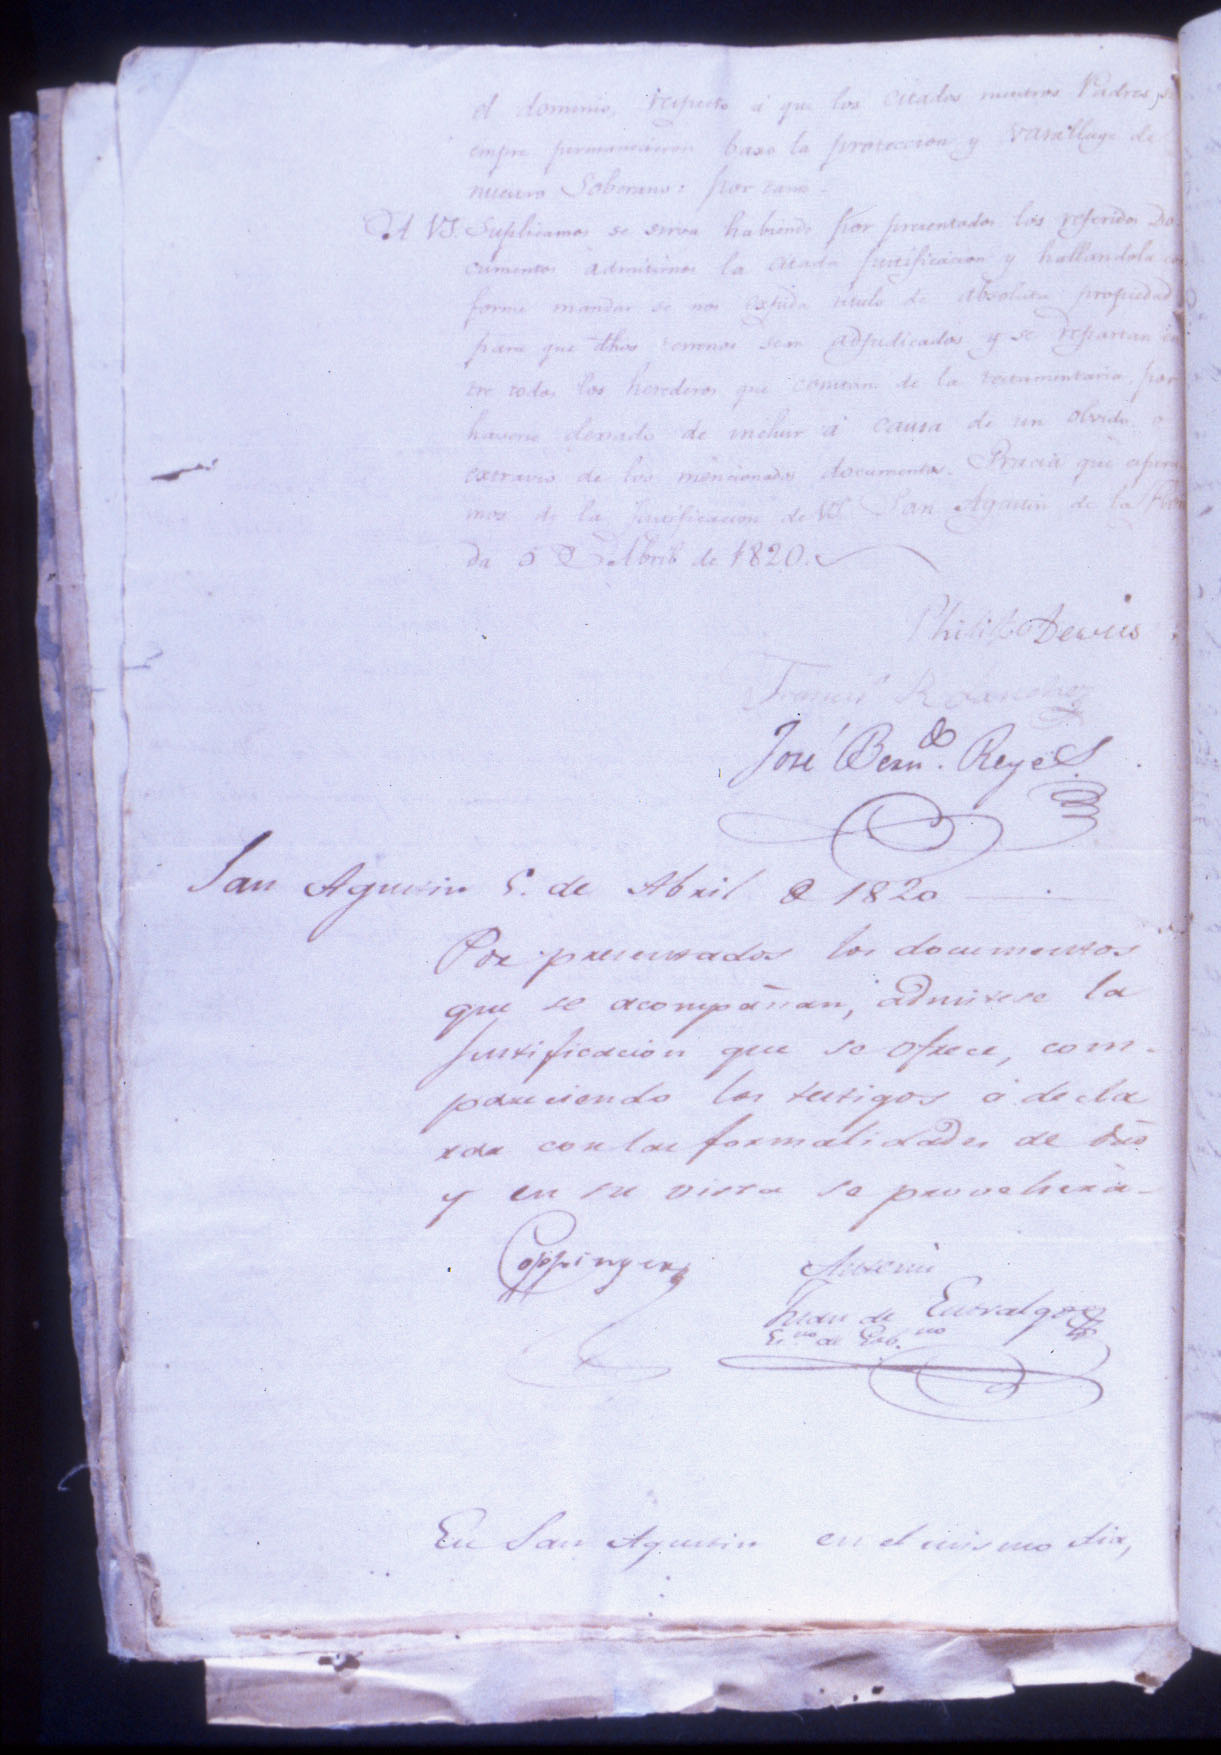 el dominio, respecto á que los citados nuestros Padres, si
empre permanecieron baxo la proteccion y vasallage de
nuestro Soberano: por tanto.
A VS. Suplicamos se sirva habiendo por presentados los referidos Do
cumentos admitirnos la citada justificacion y hallandola con
forme mandar se nos expida titulo de absoluta propiedad
para que dhos terrenos sean adjudicados y se repartan en
tre todos los herederos que constan de la testamentaria, por
haverse dexado de incluir á causa de un olvido o
extravio de los mencionados documentos. Gracia que espera
mos de la justificacion de VS. San Agustin de la Flori
da 5 de Abril de 1820.
Jose Bern.do Reyes
San Agustin 5. de Abril de 1820
Por presentados los documentos
que se acompañan, admitese la
justificacion que se ofrece, com-
pareciendo los testigos á decla
rar con las formalidades de dro
y en su vista se proveherá-
Coppinger
Antemi
Juan de Entralgo
Es.no de Gob.no
En San Agustin en el mismo dia,